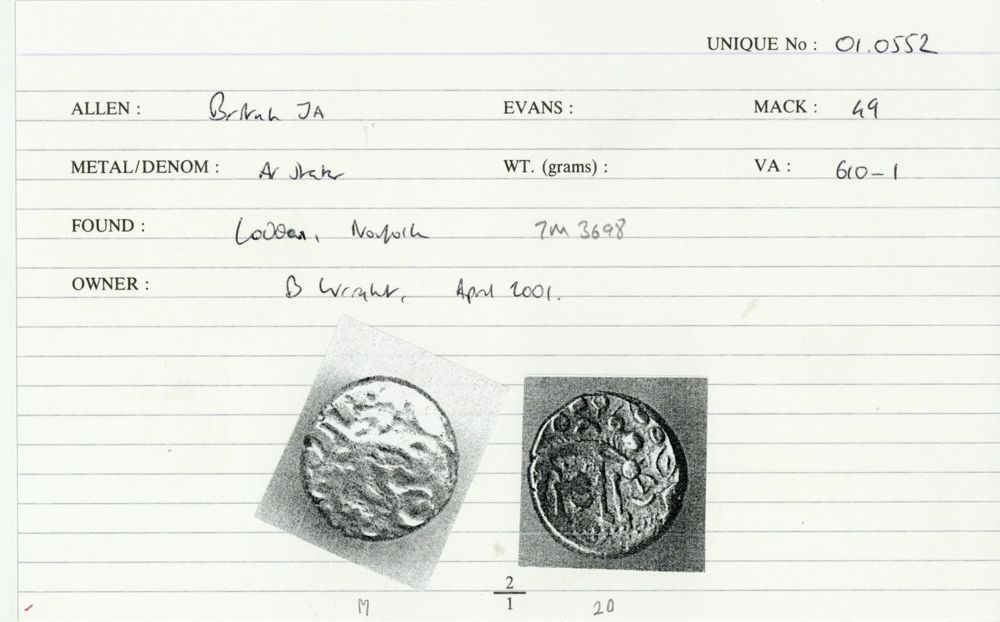 UNIQUE No : 01.0552
ALLEN : British JA EVANS : MACK : 49
METAL/DENOM : Av stater WT. (grams) : VA : 610-1
FOUND : Loddon, Norfolk TM 3698
OWNER : B Wright, April 2001.
2
M 1 20